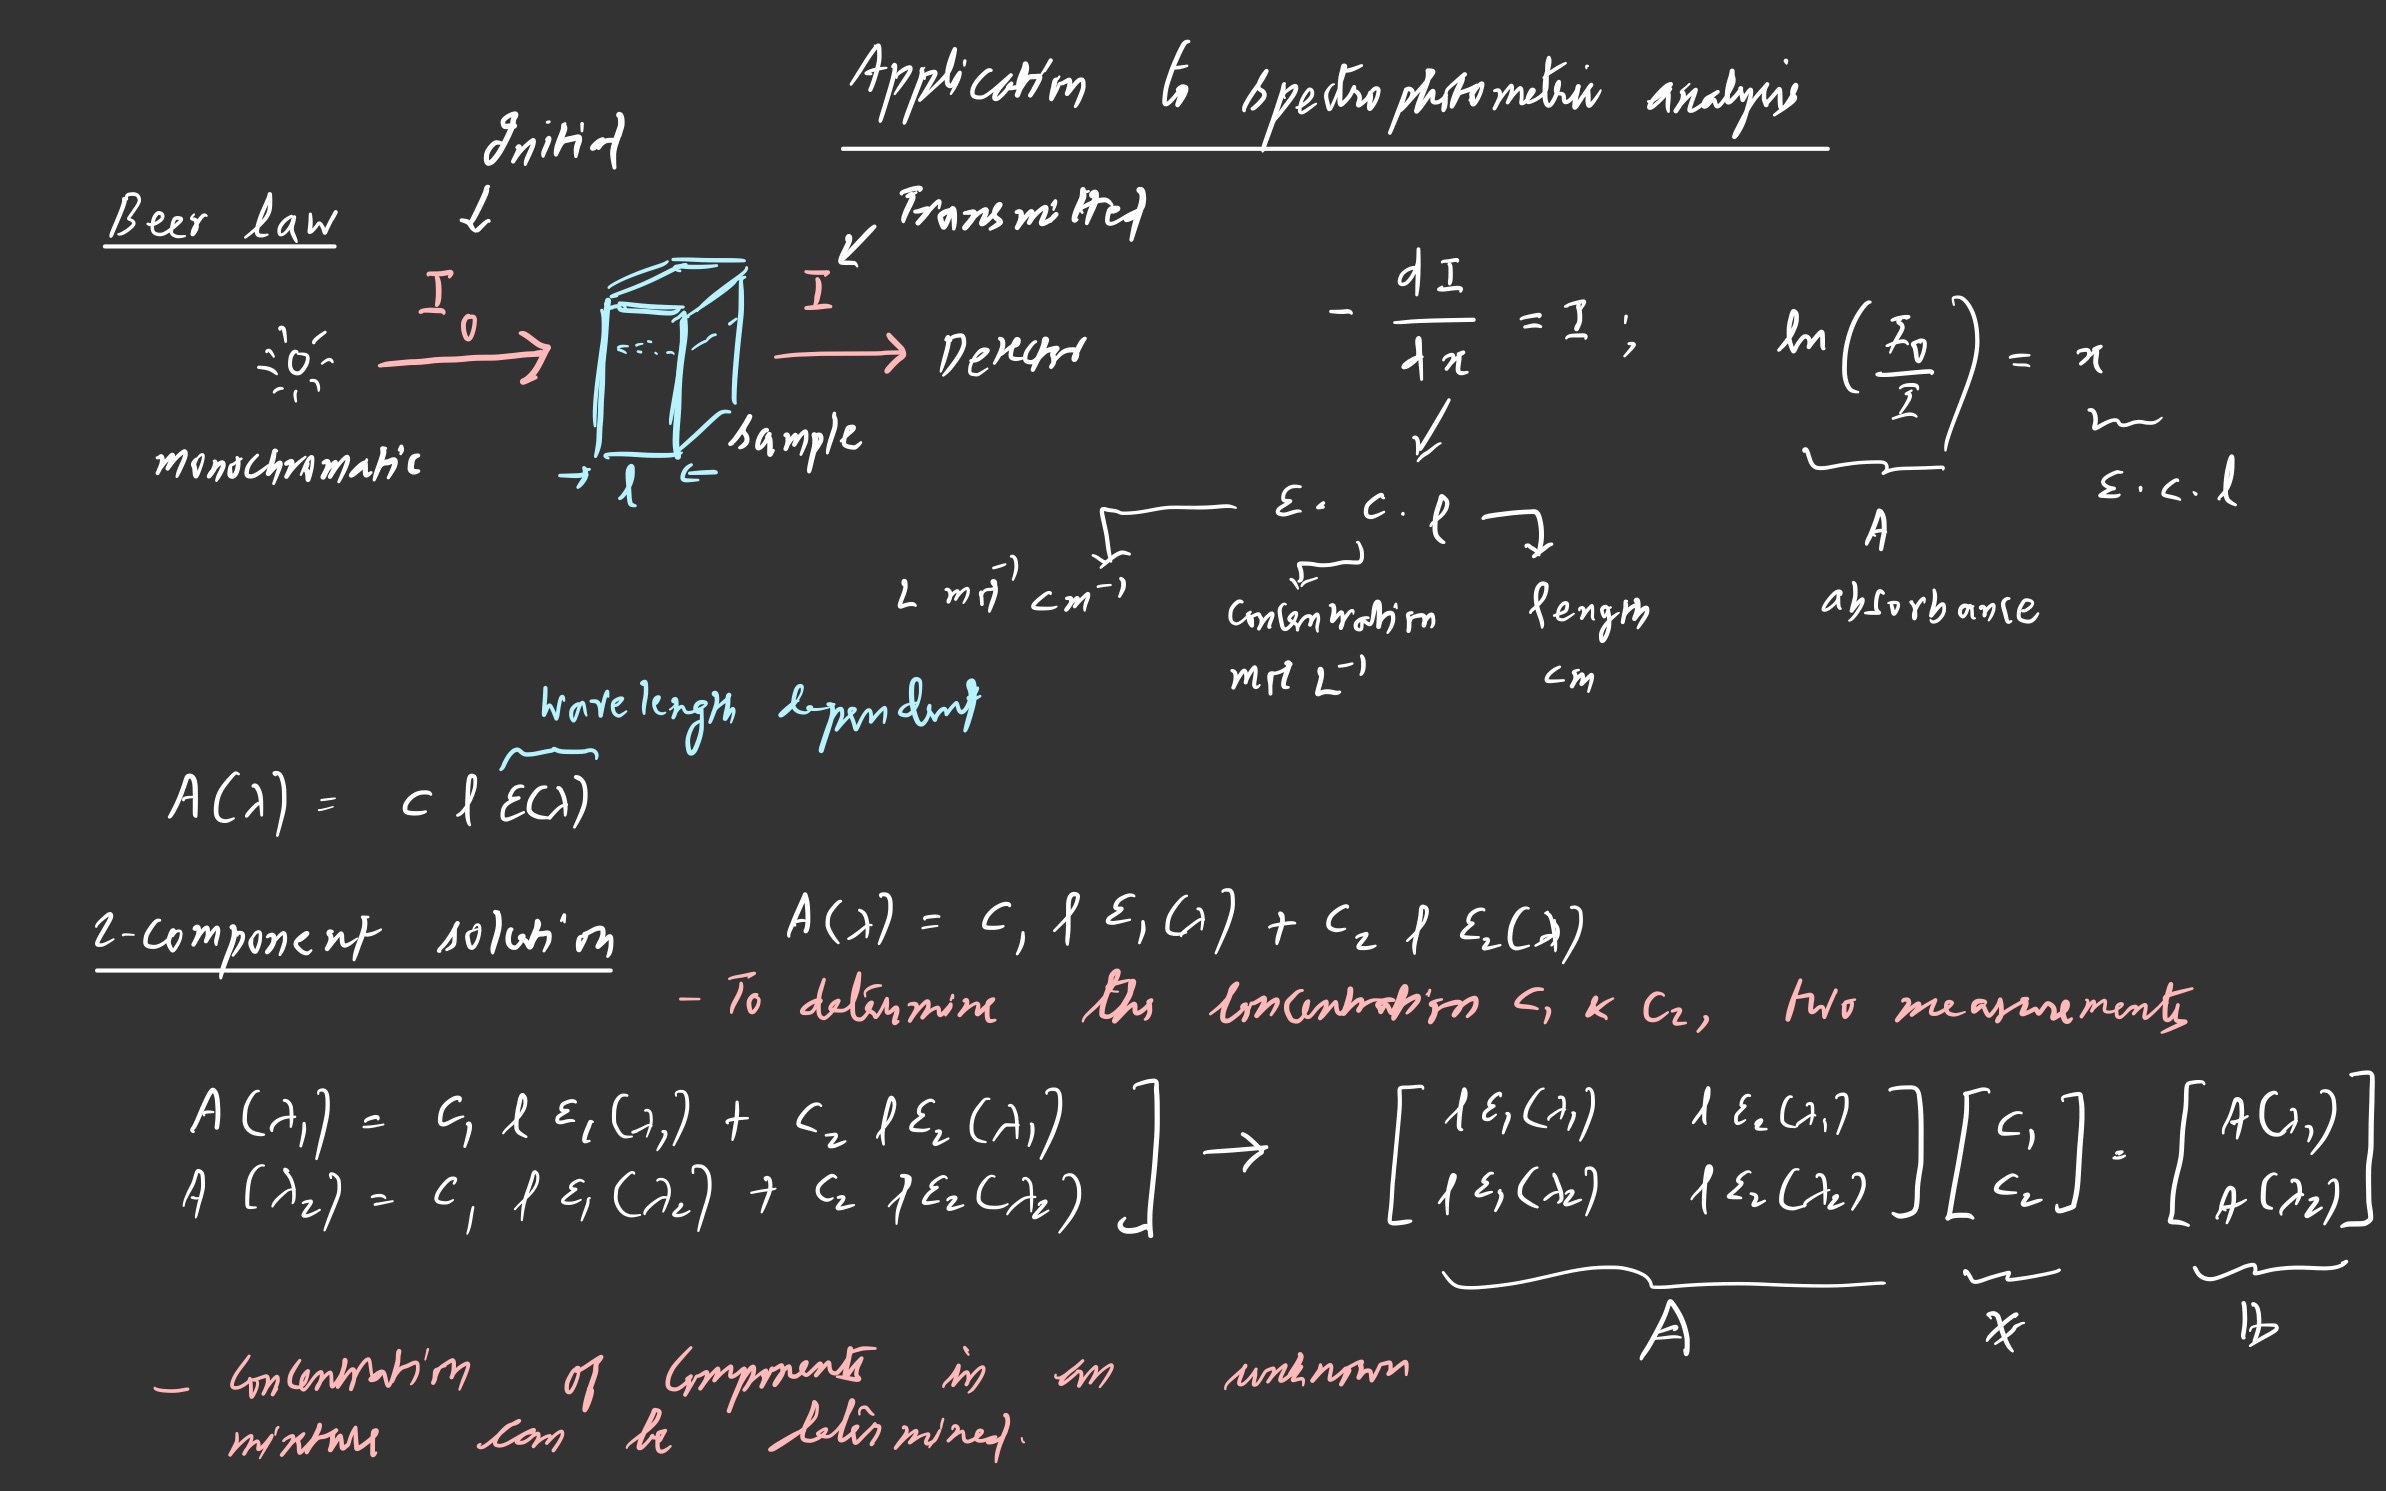 Application to spectrophotometric analysis
Initial
Beer law
Transmitted
I₀
I
Detector
monochromatic
sample
l
- dI/dx = I ; ln(I₀/I) = x
ε · c · l
A
absorbance
ε · c · l
L mol⁻¹ cm⁻¹
Concentration
mol L⁻¹
length
cm
Wavelength dependent
A(λ) = c l ε(λ)
2-component solution
A(λ) = c₁ l ε₁(λ) + c₂ l ε₂(λ)
- To determine the concentration c₁ & c₂, two measurements
A(λ₁) = c₁ l ε₁(λ₁) + c₂ l ε₂(λ₁)
A(λ₂) = c₁ l ε₁(λ₂) + c₂ l ε₂(λ₂)
→
[ l ε₁(λ₁) l ε₂(λ₁) ] [ c₁ ] = [ A(λ₁) ]
[ l ε₁(λ₂) l ε₂(λ₂) ] [ c₂ ] [ A(λ₂) ]
A x b
- Concentration of Components in an unknown
mixture can be determined.